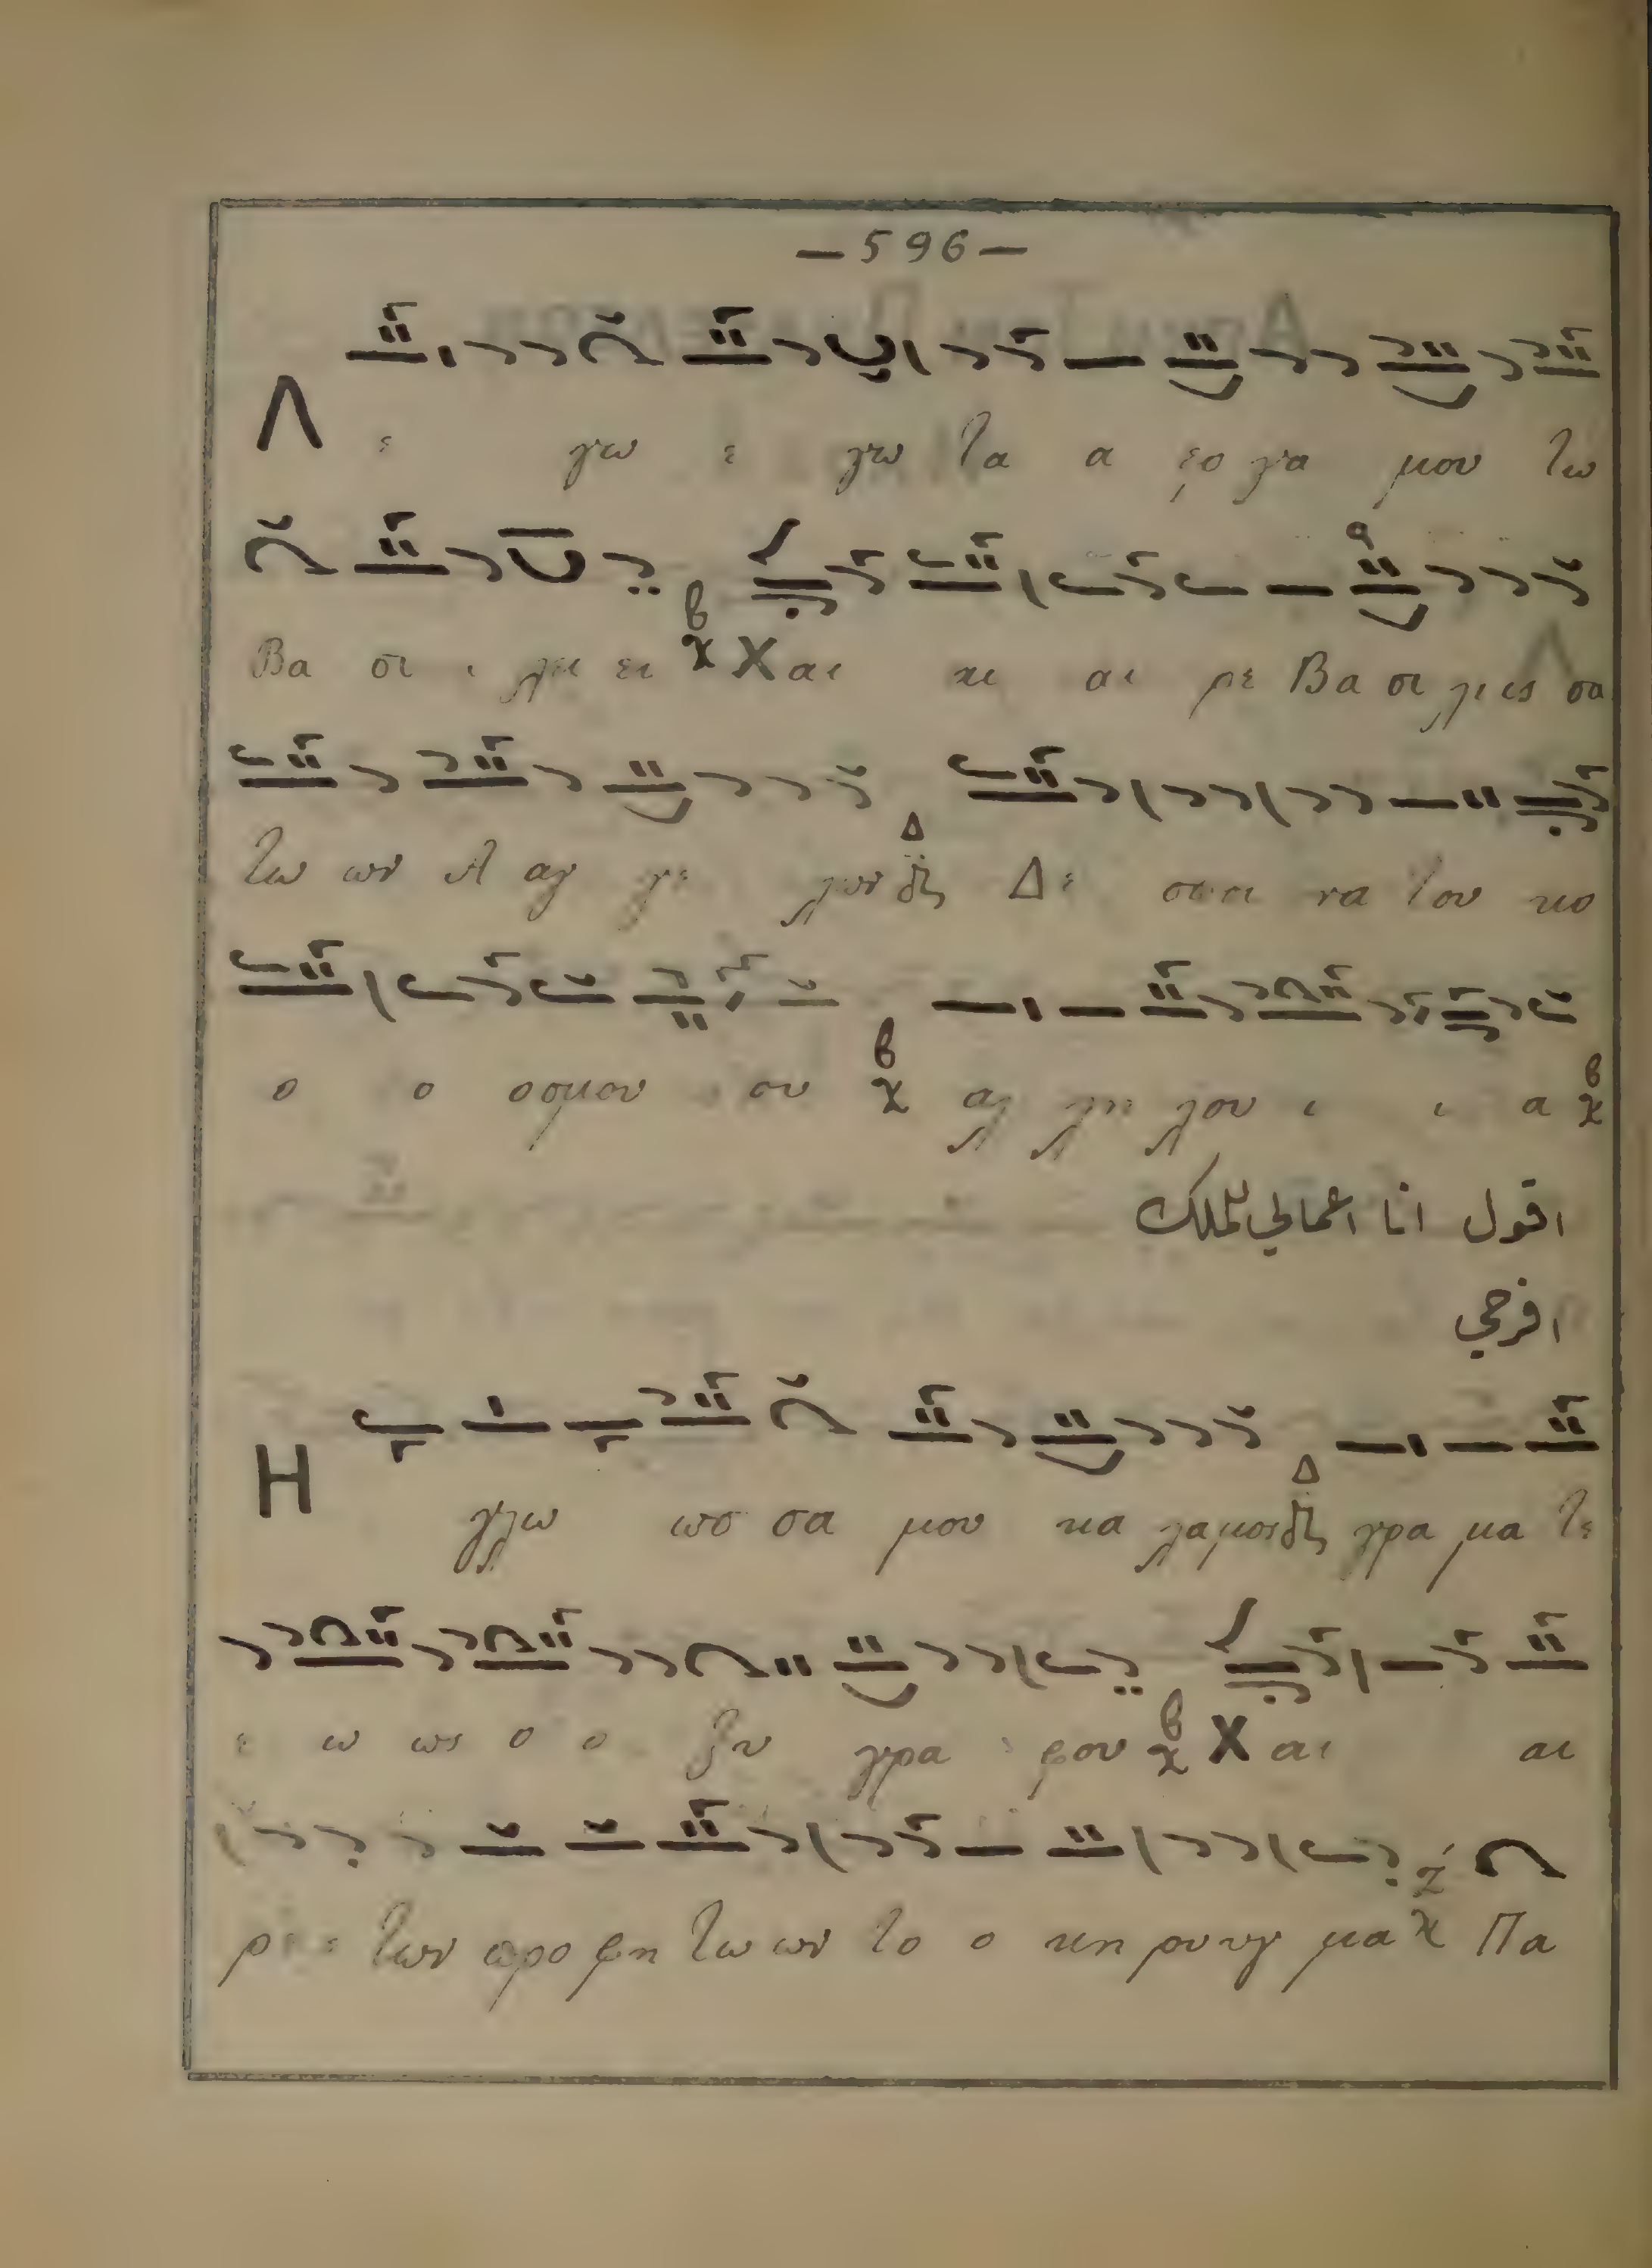 — 596 —
Λ ε γω ε γω τα α ερ γα μου τω
Βα σι ι λει ει Χαι αι αι ρε Βα σι λισ σα
τω ων Α αγ γε λων Δε σποι να του κο
ο ο οσμου ου αλ λη λου ι ι α
اقول انا اعمالي للملك
افرحي
Η γλω ωσ σα μου κα λαμος γρα μα τε
ε ω ως ο ο ξυ γρα φου Χαι αι
ρε ε των προ φη τω ων το ο κη ρυ υγ μα Πα